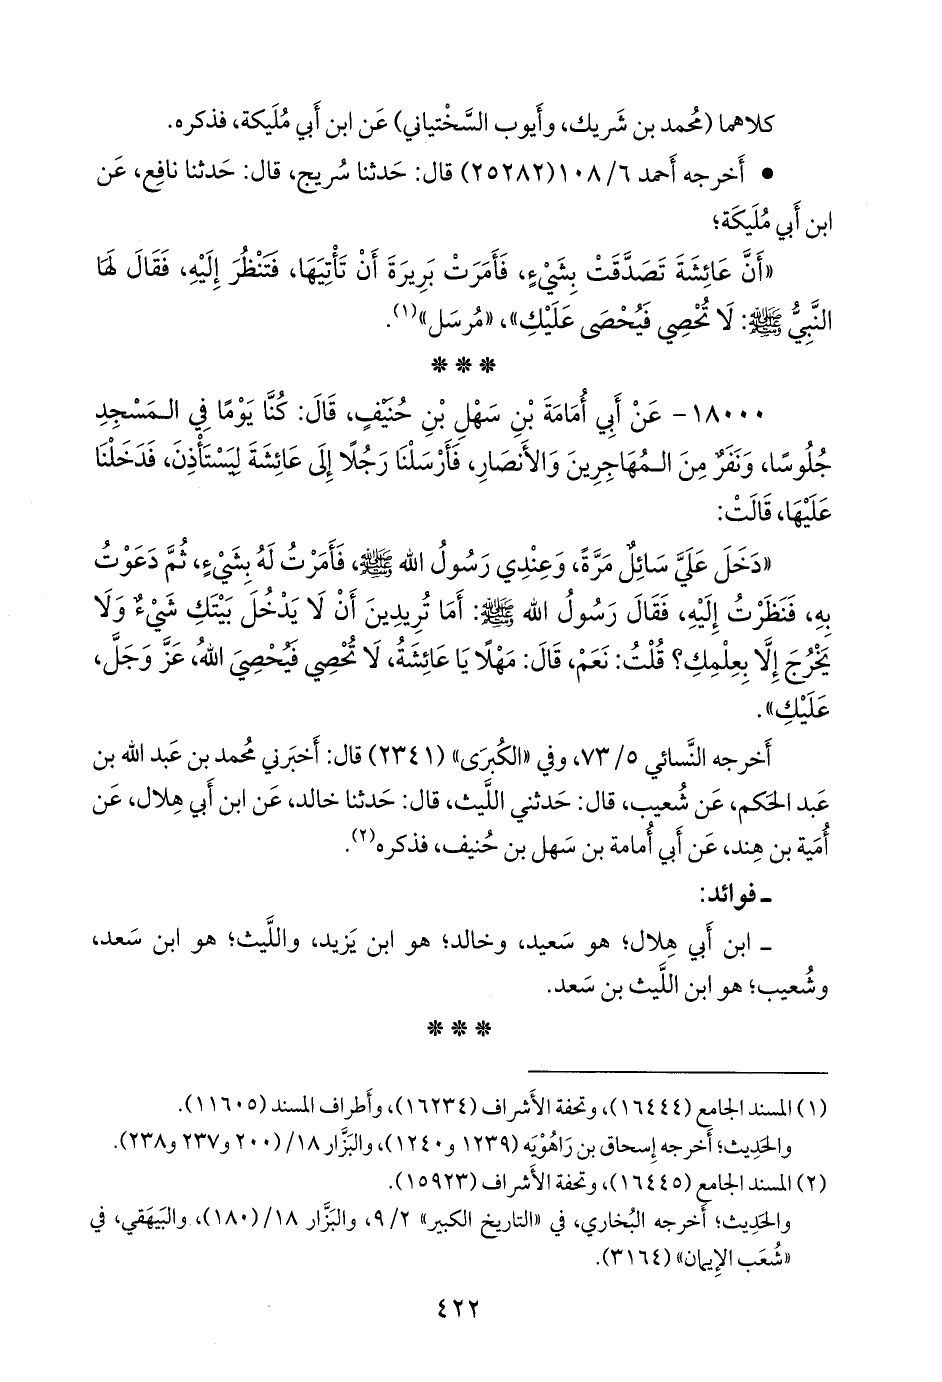 كلاهما (مُحمد بن شَريك، وأَيوب السَّخْتياني) عَن ابن أَبي مُليكة، فذكره.
• أَخرجه أَحمد ٦/ ١٠٨ (٢٥٢٨٢) قال: حَدثنا سُريج، قال: حَدثنا نافِع، عَن
ابن أَبي مُلَيكَة؛
«أَنَّ عَائِشَةَ تَصَدَّقَتْ بِشَيْءٍ، فَأَمَرَتْ بَرِيرَةَ أَنْ تَأْتِيَهَا، فَتَنْظُرَ إِلَيْهِ، فَقَالَ لَهَا
النَّبِيُّ ﷺ: لَا تُحْصِي فَيُحْصَى عَلَيْكِ»، «مُرسَل»(١).
* * *
١٨٠٠٠- عَنْ أَبِي أُمَامَةَ بْنِ سَهْلِ بْنِ حُنَيْفٍ، قَالَ: كُنَّا يَوْمًا فِي الـمَسْجِدِ
جُلُوسًا، وَنَفَرٌ مِنَ الـمُهَاجِرِينَ وَالأَنصَارِ، فَأَرْسَلْنَا رَجُلًا إِلَى عَائِشَةَ لِيَسْتَأْذِنَ، فَدَخَلْنَا
عَلَيْهَا، قَالَتْ:
«دَخَلَ عَلَيَّ سَائِلٌ مَرَّةً، وَعِنْدِي رَسُولُ الله ﷺ، فَأَمَرْتُ لَهُ بِشَيْءٍ، ثُمَّ دَعَوْتُ
بِهِ، فَنَظَرْتُ إِلَيْهِ، فَقَالَ رَسُولُ الله ﷺ: أَمَا تُرِيدِينَ أَنْ لَا يَدْخُلَ بَيْتَكِ شَيْءٌ وَلَا
يَخْرُجَ إِلَّا بِعِلْمِكِ؟ قُلْتُ: نَعَمْ، قَالَ: مَهْلًا يَا عَائِشَةُ، لَا تُحْصِي فَيُحْصِيَ اللهُ، عَزَّ وَجَلَّ،
عَلَيْكِ».
أَخرجه النَّسائي ٥/ ٧٣، وفي «الكُبرَى» (٢٣٤١) قال: أَخبَرني مُحمد بن عَبد الله بن
عَبد الحَكم، عَن شُعيب، قال: حَدثني اللَّيث، قال: حَدثنا خالد، عَن ابن أَبي هِلال، عَن
أُمَية بن هِند، عَن أَبي أُمامة بن سَهل بن حُنيف، فذكره(٢).
ـ فوائد:
ـ ابن أَبي هِلال؛ هو سَعيد، وخالد؛ هو ابن يَزيد، واللَّيث؛ هو ابن سَعد،
وشُعيب؛ هو ابن اللَّيث بن سَعد.
* * *
(١) المسند الجامع (١٦٤٤٤)، وتحفة الأَشراف (١٦٢٣٤)، وأَطراف المسند (١١٦٠٥).
والحَدِيث؛ أَخرجه إِسحاق بن رَاهُوْيَه (١٢٣٩ و١٢٤٠)، والبَزَّار ١٨/ (٢٠٠ و٢٣٧ و٢٣٨).
(٢) المسند الجامع (١٦٤٤٥)، وتحفة الأَشراف (١٥٩٢٣).
والحَدِيث؛ أَخرجه البُخاري، في «التاريخ الكبير» ٢/ ٩، والبَزَّار ١٨/ (١٨٠)، والبَيهَقي، في
«شُعَب الإِيمان» (٣١٦٤).
٤٢٢